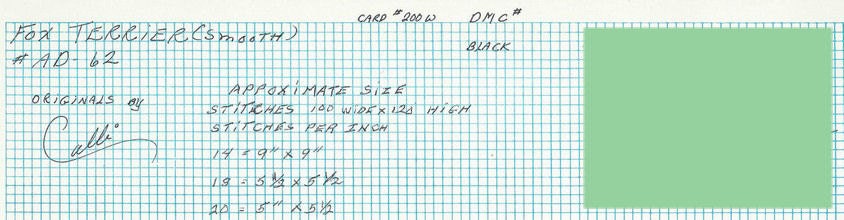 CARD #200W DMC#
FOX TERRIER (SMOOTH)
BLACK
#AD-62
APPOXIMATE SIZE
ORIGINALS By
STITCHES 100 WIDE x 120 HIGH
STITCHES PER INCH
Calli
14 = 9" x 9"
18 = 5 1/2 x 5 1/2
20 = 5" x 5 1/2